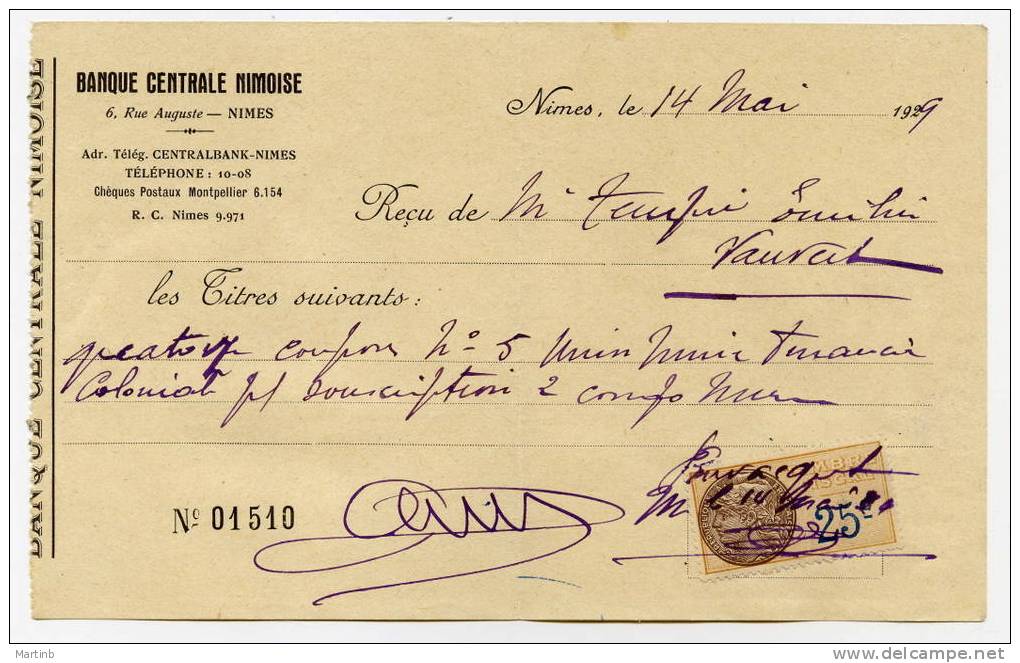 BANQUE CENTRALE NIMOISE
BANQUE CENTRALE NIMOISE
6, Rue Auguste — NIMES
Adr. Télég. CENTRALBANK-NIMES
TÉLÉPHONE : 10-08
Chèques Postaux Montpellier 6.154
R. C. Nimes 9.971
Nimes, le 14 Mai 1929
Reçu de Mr
Vauvert
les Titres suivants :
coupons No 5 Union
Coloniale pr souscription 2 congo
No 01510
25c
Martinb
www.delcampe.net